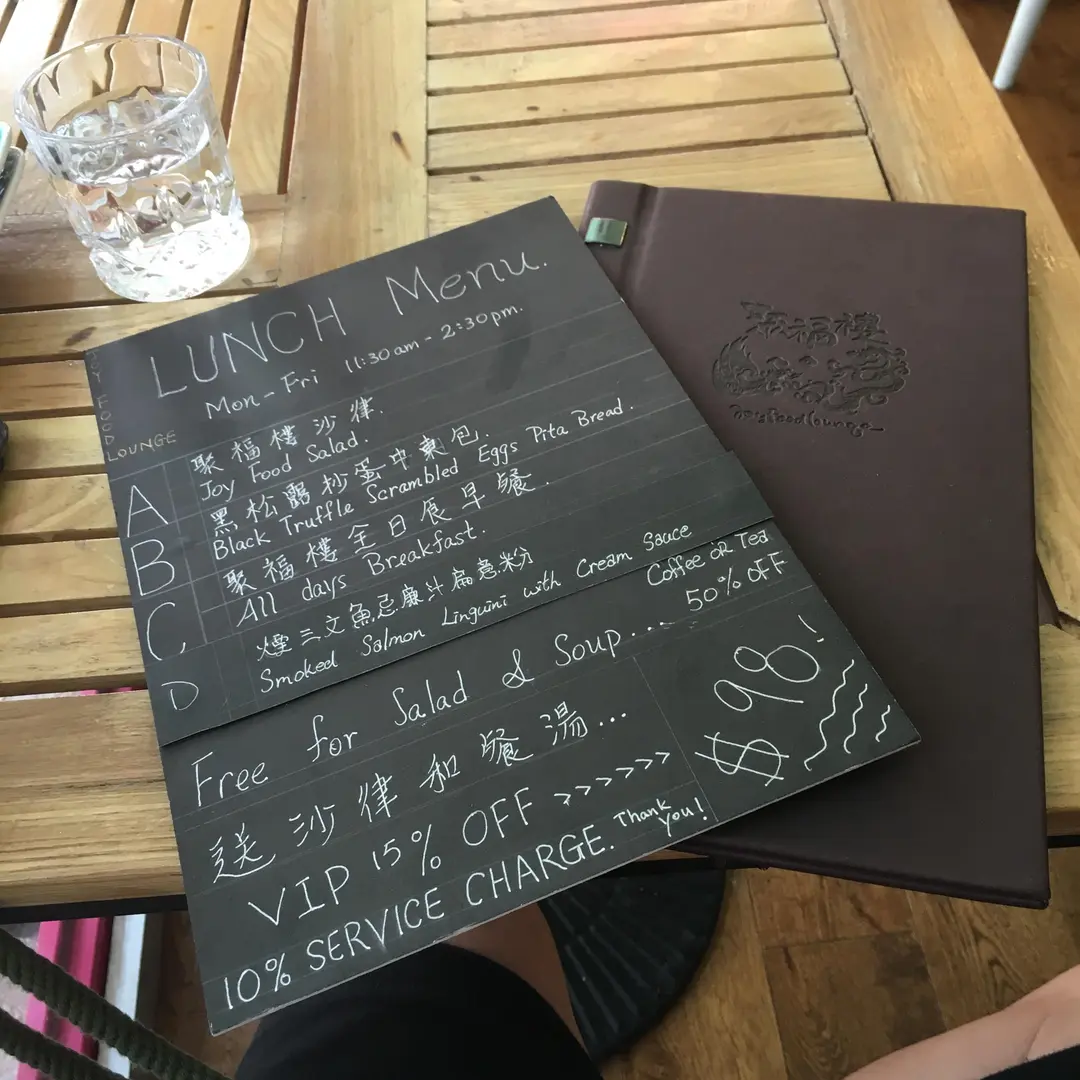 LUNCH Menu.
Mon - Fri 11:30 am - 2:30 pm.
JOY FOOD
LOUNGE
聚福樓沙律.
Joy Food Salad.
A
黑松露炒蛋中東包.
Black Truffle Scrambled Eggs Pita Bread.
B
聚福樓全日侯早餐.
All days Breakfast.
C
煙三文魚忌廉汁扁意粉
Smoked Salmon Linguini with Cream Sauce
D
Coffee OR Tea
50% OFF
Free for Salad & Soup....
送沙律和餐湯...
$98!
VIP 15% OFF >>>>>>>
10% SERVICE CHARGE. Thank you!
聚福樓
Joy food lounge